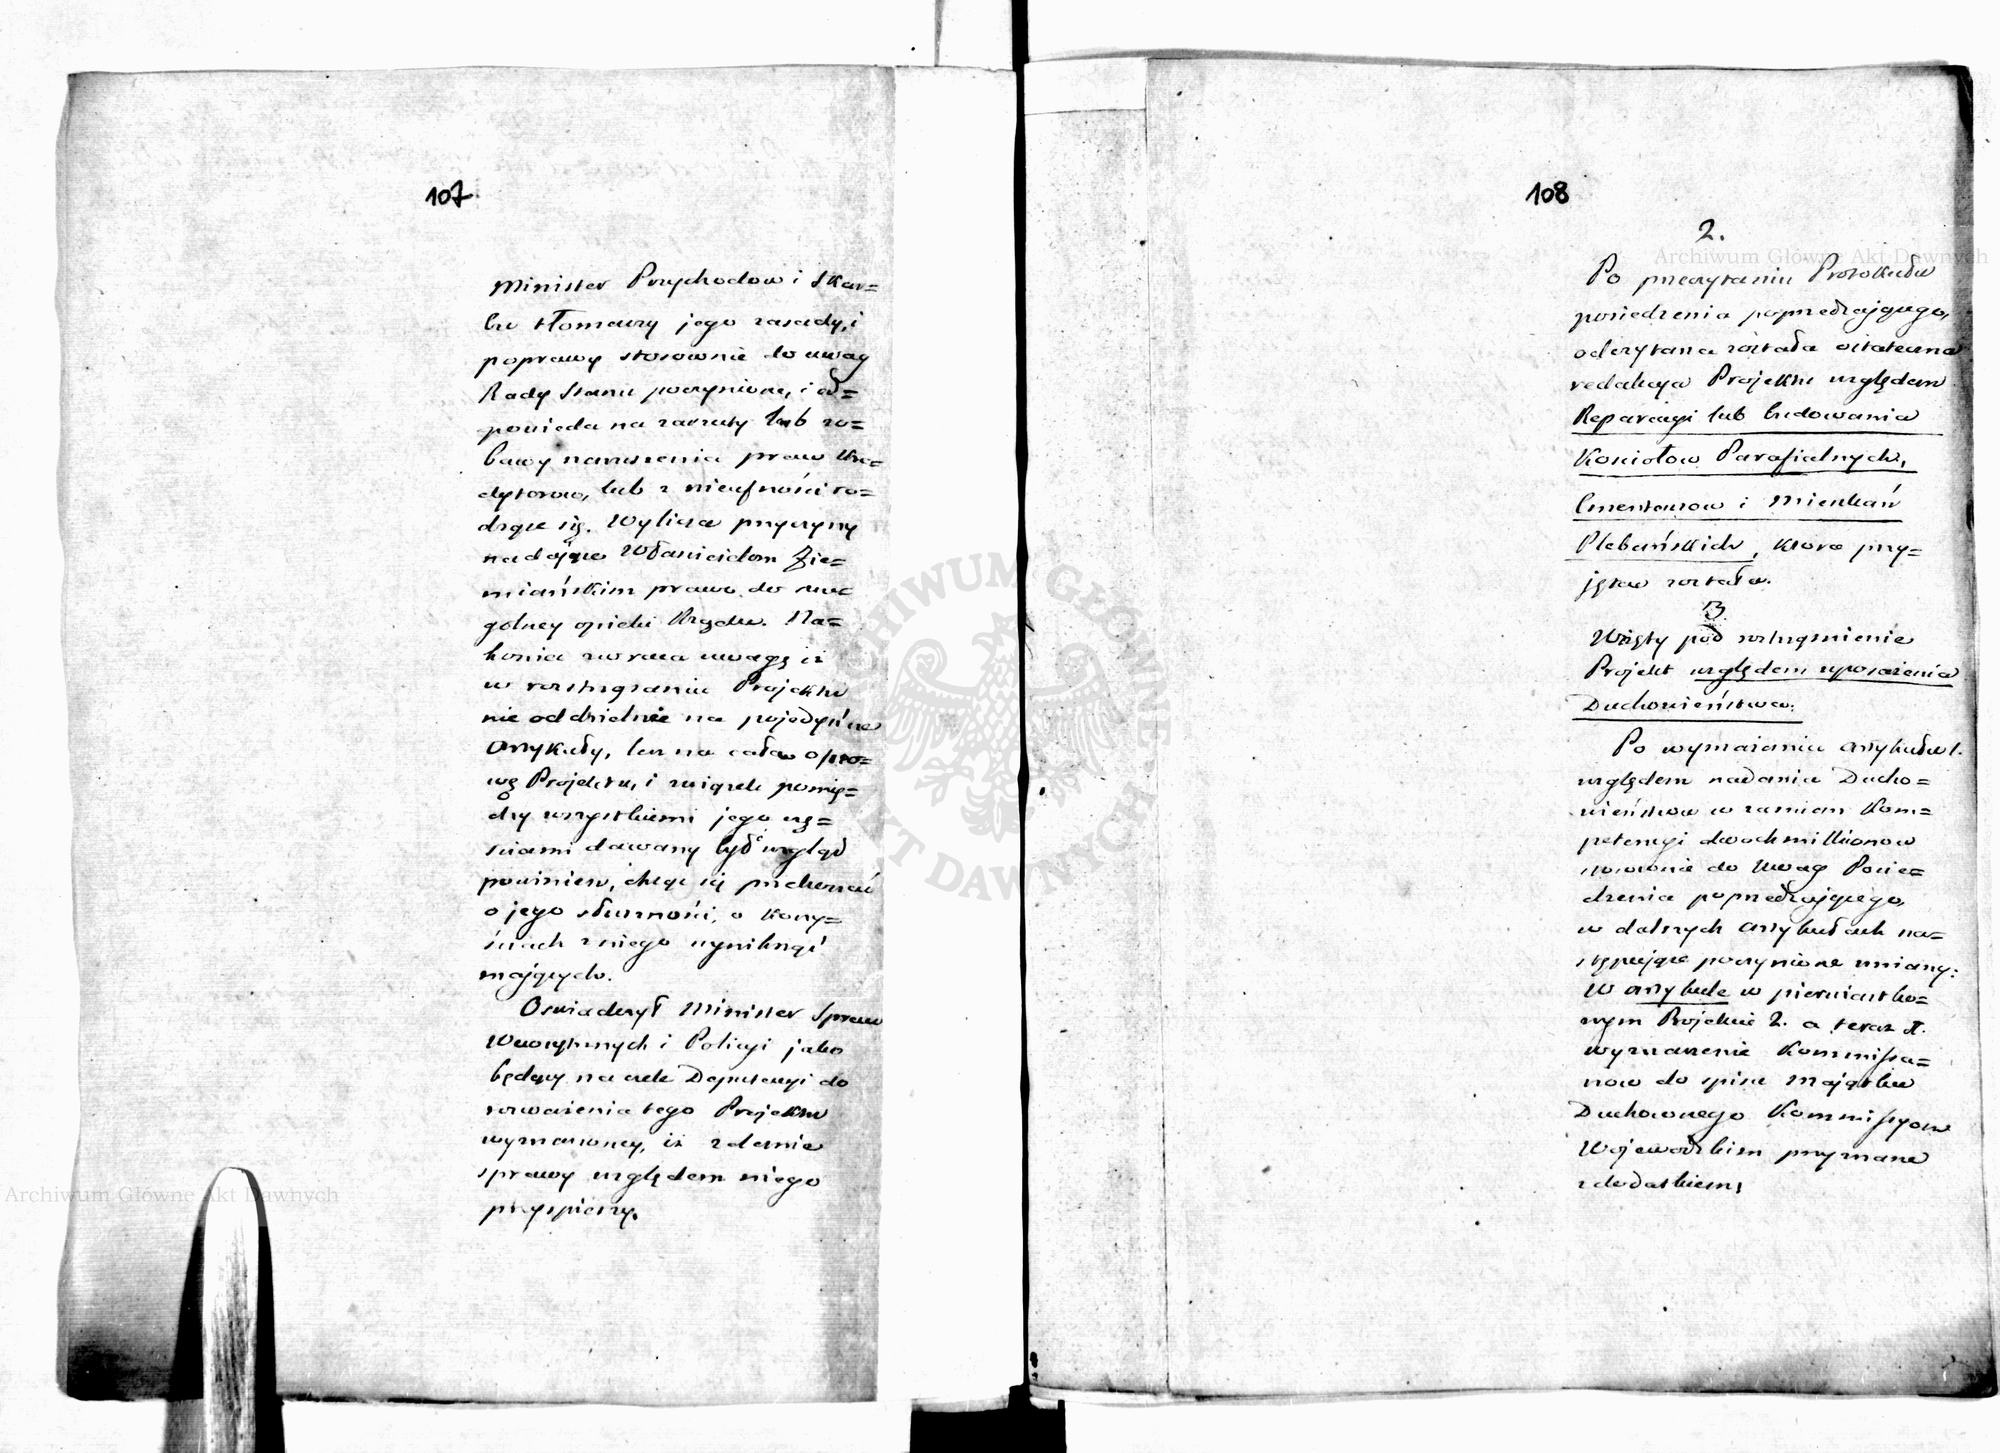 107
Minister Przychodow i Skar=
bu tłomaczy jego zasady, i
poprawy stosownie do uwag
Rady Stanu poczynione, i od=
powieda na zarzuty lub zo=
bawy naruszenia praw Kre=
dytorow, lub z nieufności ro=
dzące się. Wylicza przyczyny
nadające Właścicielom Zie=
miańskim prawo do szcze=
gólney opieki Rządu. Na=
koniec zwraca uwagę iż
w roztrząsaniu Projektu
nie oddzielnie na pojedyńcze
Artykuły, lecz na całą osno=
wę Projektu, i związek pomię=
dzy wszystkiemi jego czę=
ściami dawany być wzgląd
powinien, chcąc się przekonać
o jego słuszności, o korzy=
ściach z niego wyniknąć
mających.
Oświadczył Minister Spraw
Wewnętrznych i Policyi jako
będący na czele Deputacyi do
rozważenia tego Projektu
wyznaczoney, iż zdanie
sprawy względem niego
przyspieszy.
108
2.
Po przeczytaniu Protokułu
posiedzenia poprzedzającego,
odczytana została ostateczna
redakcya Projektu względem
Reparacyi lub budowania
Kościołow Parafialnych,
Cmentarzow i Mieszkań
Plebańskich, ktora przy=
jętą została.
3.
Wzięty pod roztrząśnienie
Projekt względem uposażenia
Duchowieństwa.
Po wymazaniu Artykułu 1.
względem nadania Ducho=
wieństwu w zamian Kom=
petencyi dwoch millionow
stosownie do Uwag Posie=
dzenia poprzedzającego,
w dalszych Artykułach na=
stępujące poczynione zmiany:
W Artykule w pierwiastko=
wym Projekcie 2. a teraz 1.
wyznaczenie Kommissa=
rzow do spisu majątku
Duchownego Kommissyom
Wojewodzkim przyznane
z dodatkiem;